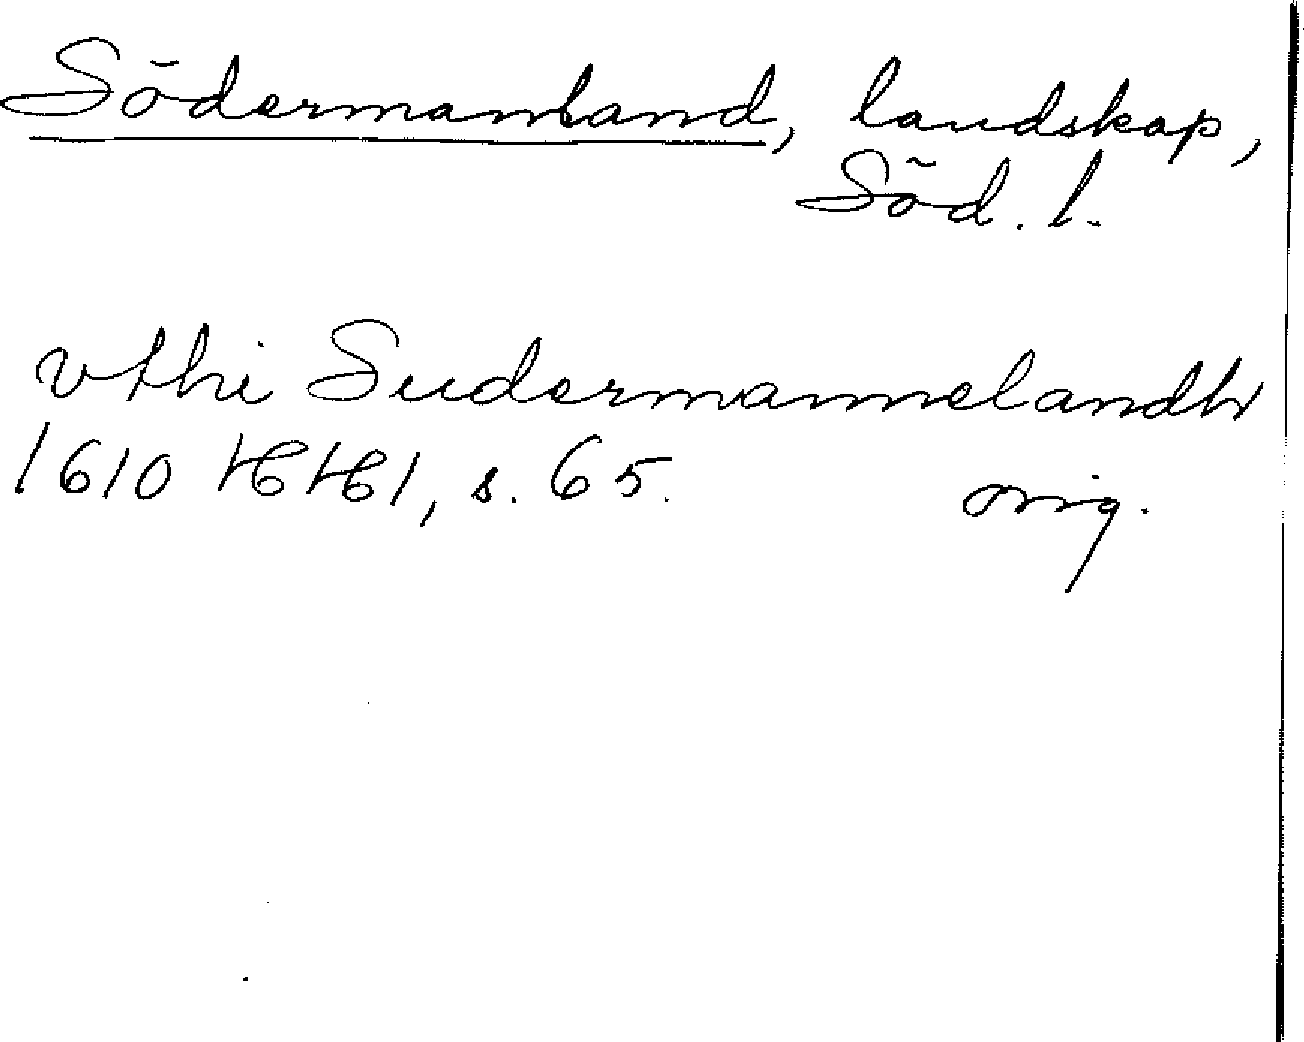 Södermanland, landskap,
Söd. l.
vthi Sudermannelandh
1610 HHHH1, s. 65.
orig.